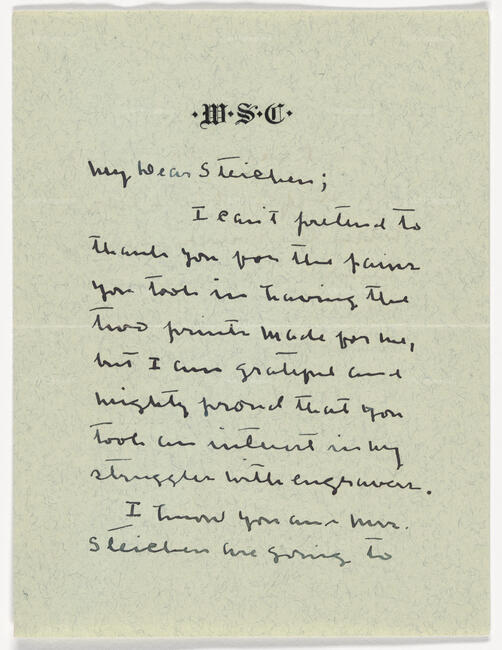 ·W·S·C·
My Dear Steichen;
I can't pretend to
thank you for the pains
you took in having the
two prints made for me,
but I am grateful and
mighty proud that you
took an interest in my
struggles with engravers.
I know you and Mrs.
Steichen are going to